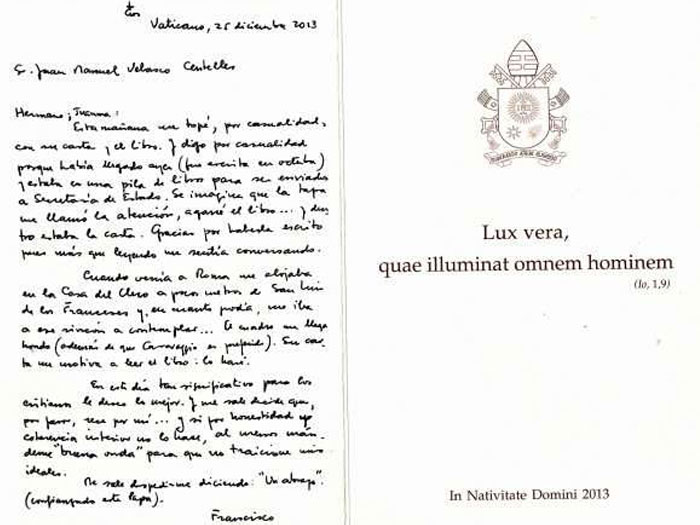 Vaticano, 25 diciembre 2013
Sr. Juan Manuel Velasco Centelles
Hermano, Juanma:
Esta mañana me topé, por casualidad,
con su carta y el libro. Y digo por casualidad
porque había llegado ayer (fue escrita en octubre)
y estaba en una pila de libros para ser enviados
a Secretaría de Estado. Se imagina que la tapa
me llamó la atención, agarré el libro... y den
tro estaba la carta. Gracias por haberla escrito
pues más que leyendo me sentía conversando.
Cuando venía a Roma me alojaba
en la Casa del Clero a pocos metros de San Luis
de los Franceses y, en cuanto podía, me iba
a ese rincón a contemplar... El cuadro me llega
hondo (además de que Caravaggio es preferido). Su car
ta me motiva a leer el libro: lo haré.
En este día tan significativo para los
cristianos le deseo lo mejor. Y me sale decirle que,
por favor, rece por mí... y si por honestidad y
coherencia interior no lo hace, al menos mán-
deme "buena onda" para que no traicione mis
ideales.
Me sale despedirme diciendo: "Un abrazo".
(confianzudo este Papa).
Francisco
Lux vera,
quae illuminat omnem hominem
(Io, 1,9)
In Nativitate Domini 2013